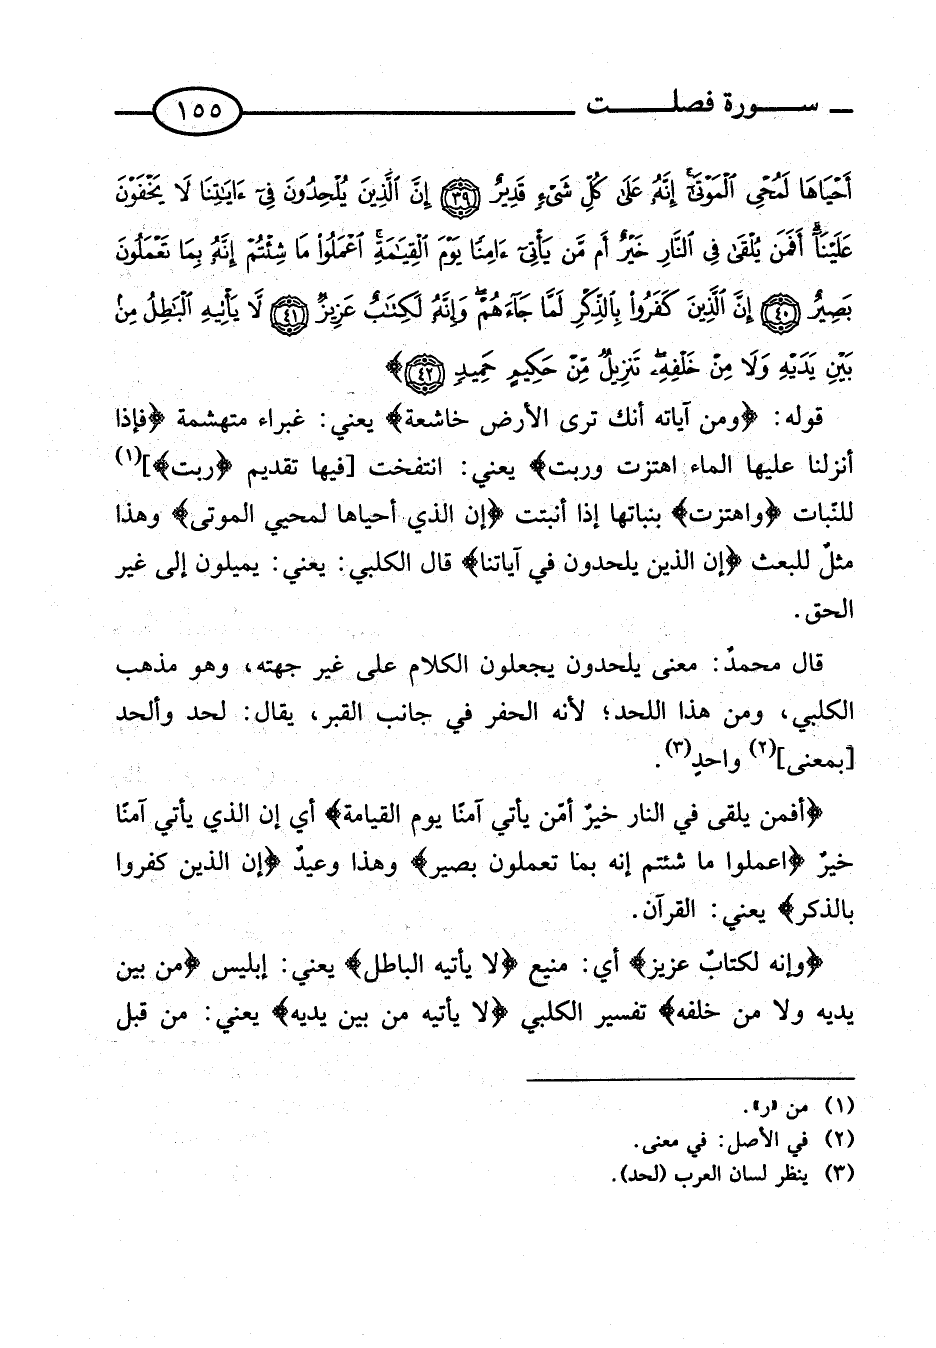 سورة فصلت ١٥٥
أَحْيَاهَا لَمُحْيِ ٱلْمَوْتَىٰٓ إِنَّهُۥ عَلَىٰ كُلِّ شَىْءٍ قَدِيرٌ ﴿٣٩﴾ إِنَّ ٱلَّذِينَ يُلْحِدُونَ فِىٓ ءَايَٰتِنَا لَا يَخْفَوْنَ
عَلَيْنَآ أَفَمَن يُلْقَىٰ فِى ٱلنَّارِ خَيْرٌ أَم مَّن يَأْتِىٓ ءَامِنًا يَوْمَ ٱلْقِيَٰمَةِ ٱعْمَلُوا۟ مَا شِئْتُمْ إِنَّهُۥ بِمَا تَعْمَلُونَ
بَصِيرٌ ﴿٤٠﴾ إِنَّ ٱلَّذِينَ كَفَرُوا۟ بِٱلذِّكْرِ لَمَّا جَآءَهُمْ وَإِنَّهُۥ لَكِتَٰبٌ عَزِيزٌ ﴿٤١﴾ لَّا يَأْتِيهِ ٱلْبَٰطِلُ مِنۢ
بَيْنِ يَدَيْهِ وَلَا مِنْ خَلْفِهِۦ تَنزِيلٌ مِّنْ حَكِيمٍ حَمِيدٍ ﴿٤٢﴾﴾
قوله: ﴿ومن آياته أنك ترى الأرض خاشعة﴾ يعني: غبراء متهشمة ﴿فإذا
أنزلنا عليها الماء اهتزت وربت﴾ يعني: انتفخت [فيها تقديم ﴿ربت﴾](١)
للنّبات ﴿واهتزت﴾ بنباتها إذا أنبتت ﴿إن الذي أحياها لمحيي الموتى﴾ وهذا
مثلٌ للبعث ﴿إن الذين يلحدون في آياتنا﴾ قال الكلبي: يعني: يميلون إلى غير
الحق.
قال محمدٌ: معنى يلحدون يجعلون الكلام على غير جهته، وهو مذهب
الكلبي، ومن هذا اللحد؛ لأنه الحفر في جانب القبر، يقال: لحد وألحد
[بمعنى](٢) واحدٍ(٣).
﴿أفمن يلقى في النار خيرٌ أمّن يأتي آمنًا يوم القيامة﴾ أي إن الذي يأتي آمنًا
خيرٌ ﴿اعملوا ما شئتم إنه بما تعملون بصير﴾ وهذا وعيدٌ ﴿إن الذين كفروا
بالذكر﴾ يعني: القرآن.
﴿وإنه لكتابٌ عزيز﴾ أي: منيع ﴿لا يأتيه الباطل﴾ يعني: إبليس ﴿من بين
يديه ولا من خلفه﴾ تفسير الكلبي ﴿لا يأتيه من بين يديه﴾ يعني: من قبل
(١) من «ر».
(٢) في الأصل: في معنى.
(٣) ينظر لسان العرب (لحد).